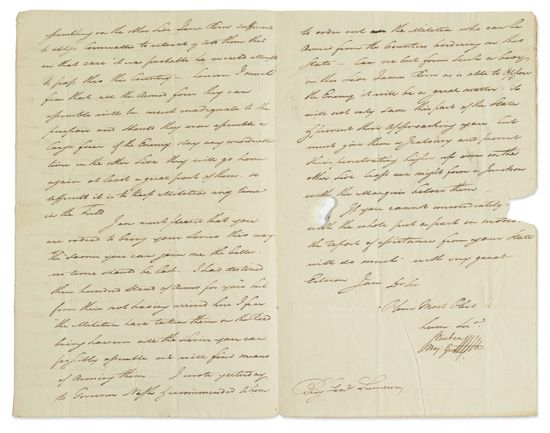 assembling on the other side James River sufficient
to oblige Cornwallis to retreat if with them that
in that case it was probable he would attempt
to pass thro the Country —. Simon I much
fear that all the Armed force they can
assemble will be much inadequate to the
purpose and should they even assemble a
large force if the Enemy stay any considerable
time on the other side they will go home
again at least a great part of them. so
difficult it is to keep Militia any time
in the Field
I am much pleased that you
are ordered to bring your Levies this way
the sooner you can join me the better.
no time should be lost. I had destined
three hundred Stand of Arms for you but
from their not having arrived here I fear
the Militia have taken them on the Road
bring however all the Levies you can
possibly assemble we will find means
of Arming them — I wrote yesterday
to Governor Nash & recommended to him
to order out all the Militia who can be
Armed from the Counties bordering on this
State — Can we but form such a body
on this side James River as is able to oppose
the Enemy it will be a great matter. it
will not only save this part of the State
& prevent their approaching yours but
must give them a Jealousy and prevent
their penetrating higher up even on the
other side. perhaps we might form a Junction
with the Marquis below them
If you cannot immediately
with the whole put a part in motion
the report of assistance from your State
will do much. with very great
Esteem I am Dr Sir
Your Most Obt
Serv
Steuben
Maj Genl
Brig Genl Sumner